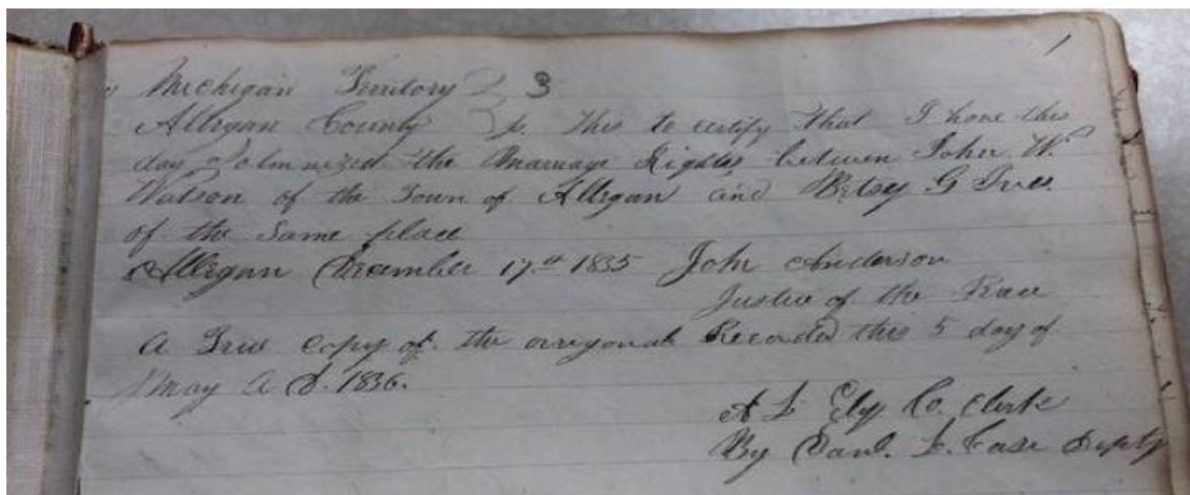 1
Michigan Territory } 3
Allegan County } ss. This to certify that I have this
day Solmnized the Marriage Rights between John W.
Watson of the Town of Allegan and Betsy G Ives
of the Same place
Allegan December 17th 1835 John Anderson
Justice of the Peace
A True Copy of the orregonal Recorded this 5 day of
May A D. 1836.
A L Ely Co. Clerk
By Danl. L. Case Deputy